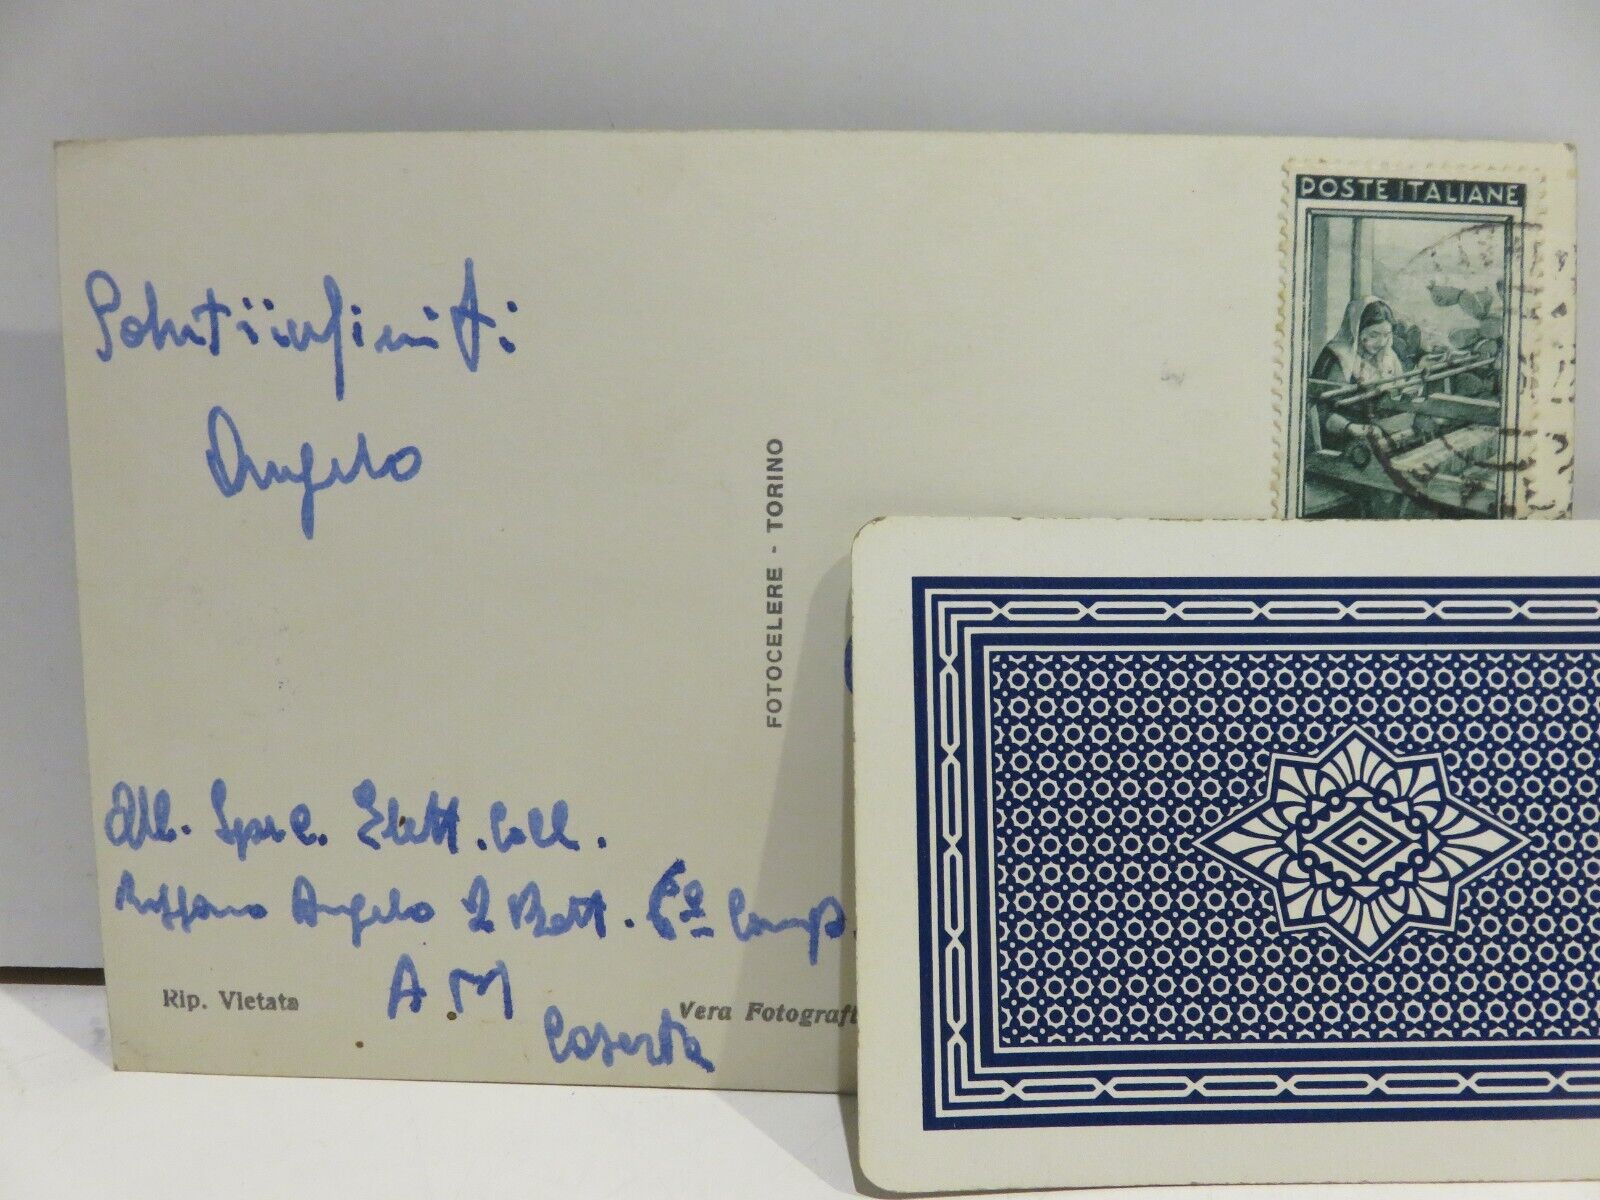 POSTE ITALIANE
Saluti infiniti
Angelo
FOTOCELERE - TORINO
All. Spec. Elett. Coll.
Angelo 2 Batt. 6ª Comp.
A M
Caserta
Rip. Vietata
Vera Fotografi